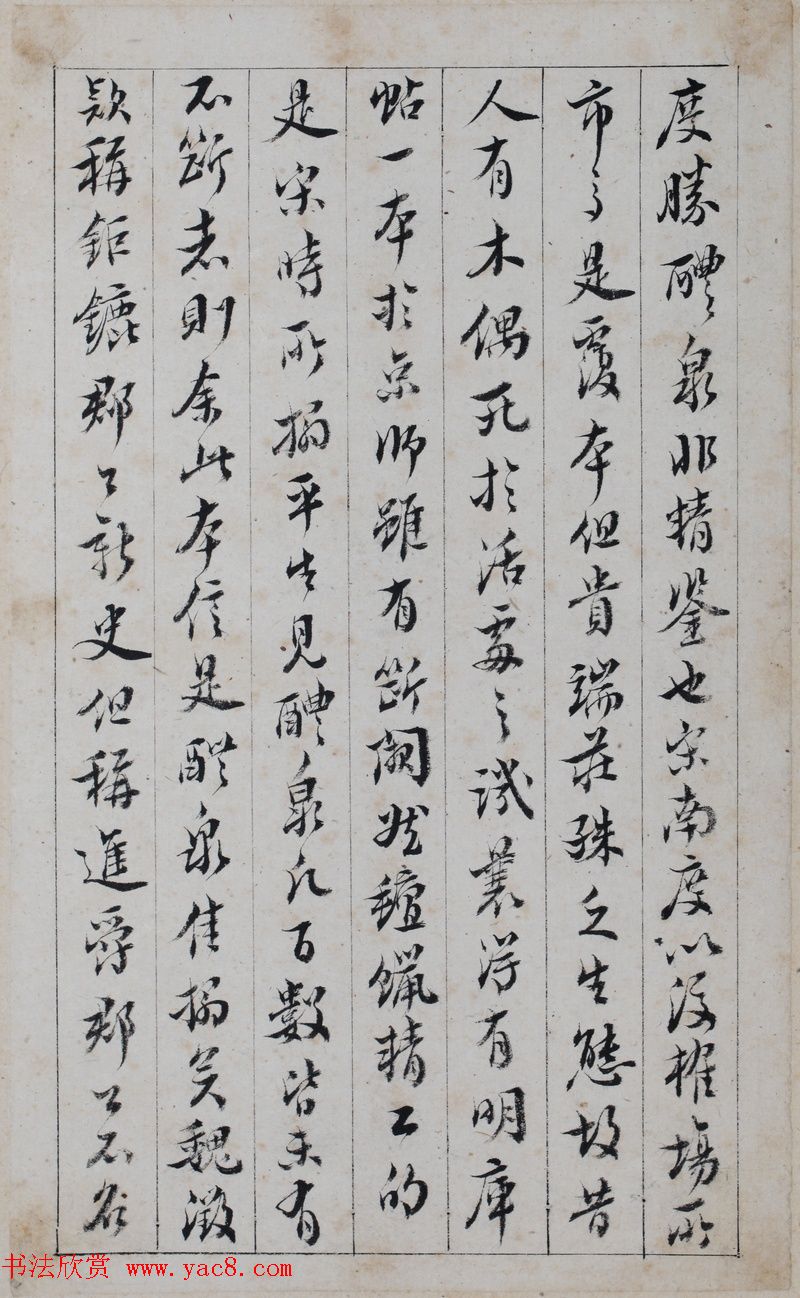 度勝醴泉非精鑒也宋南度以後榷場所
市多是覆本但貴端莊殊乏生態故昔
人有木偶死於活處之譏襄得有明庫
帖一本於京師雖有斷闕然氊蠟精工的
是宋時所搨平生見醴泉凡百數皆未有
不斷者則余此本信是醴泉佳搨矣魏徵
款稱鉅鹿郡公新史但稱進爵郡公不名
书法欣赏 www.yac8.com